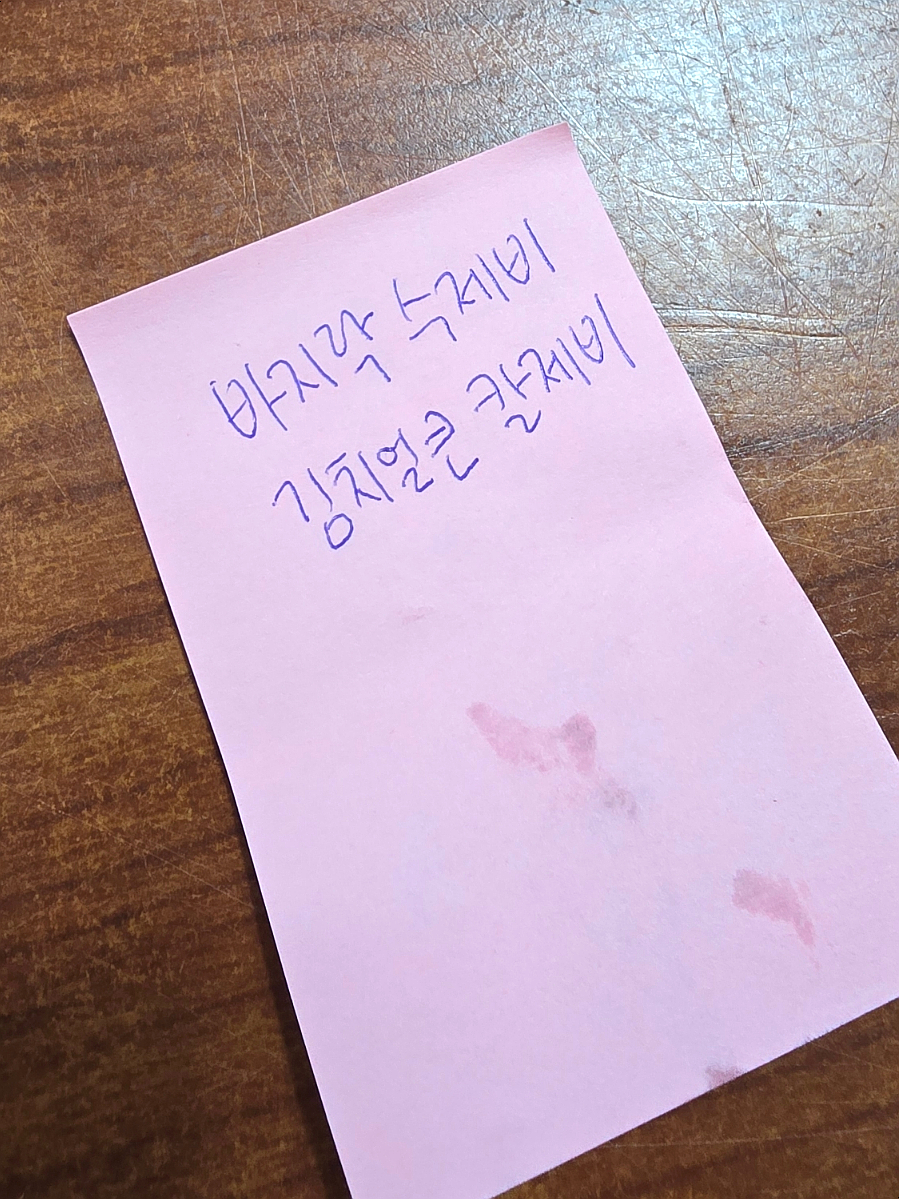 바지락 수제비
김치얼큰 칼제비